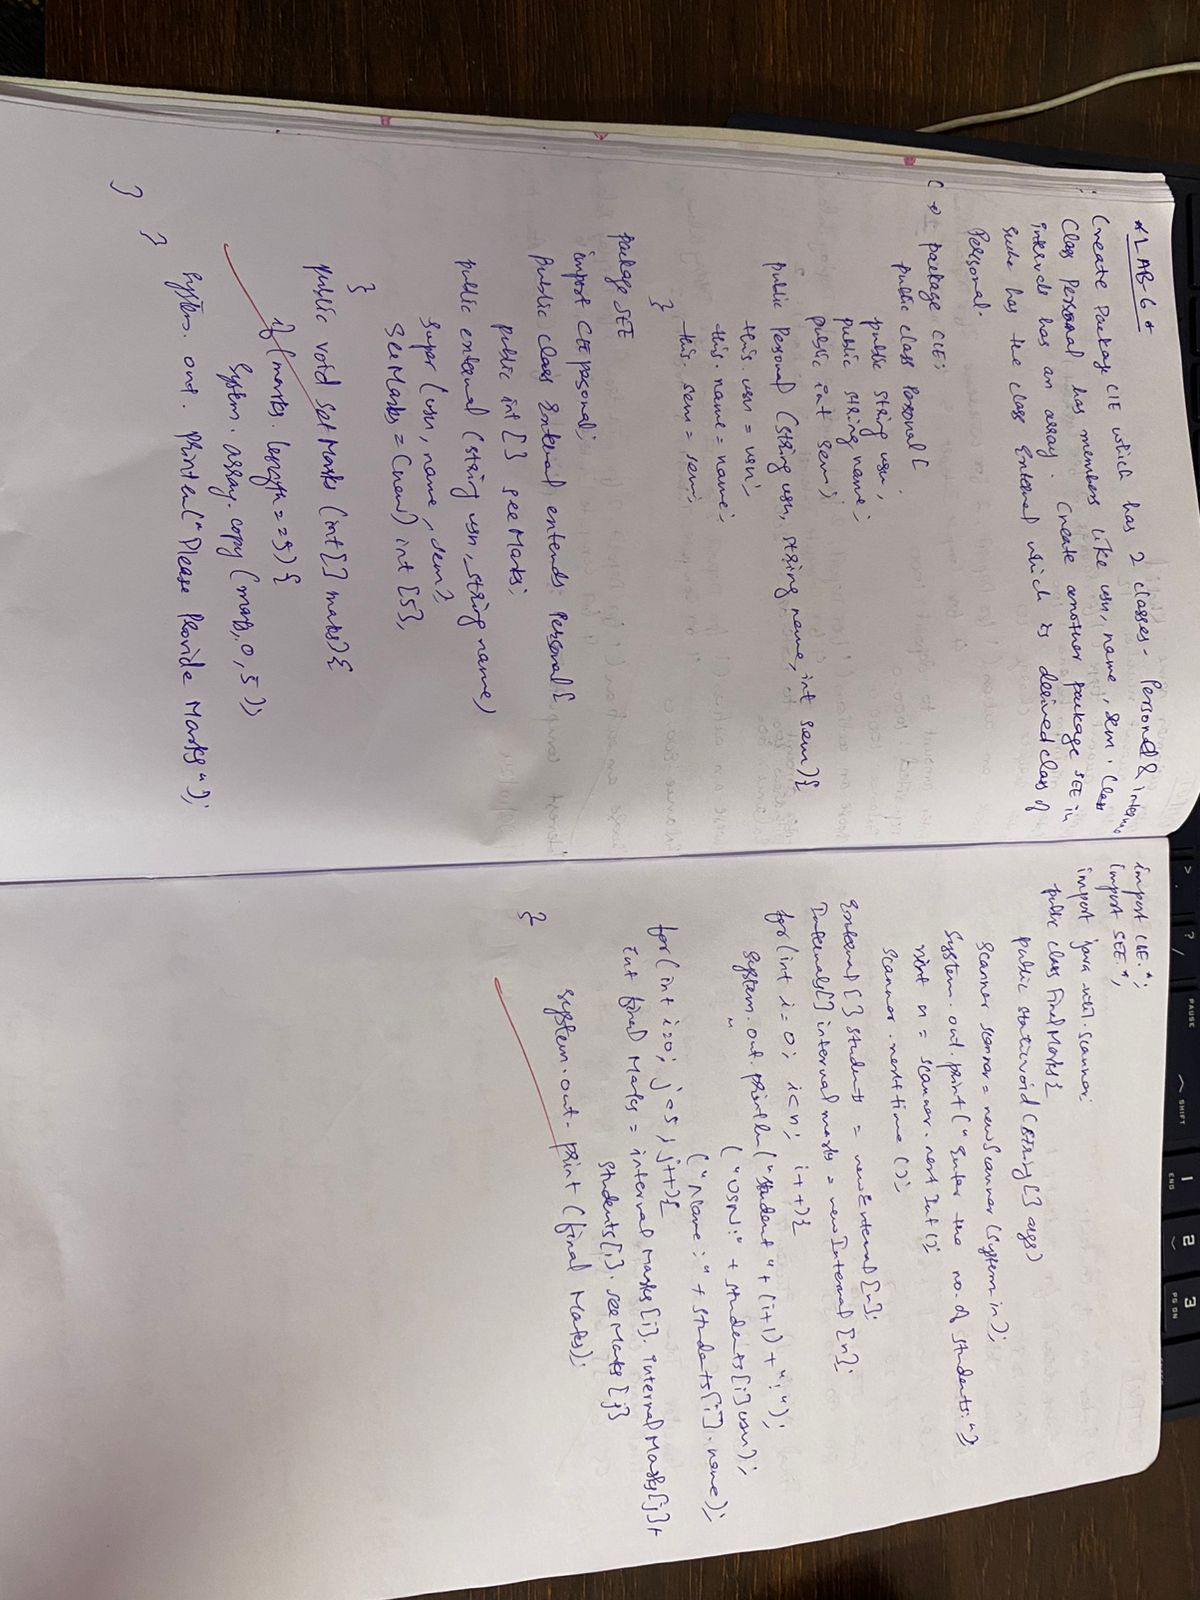 * LAB-6 *
Create Package CIE which has 2 classes - Personal & internals
Class Personal has members like usn, name, sem. Class
internals has an array. Create another package SEE in
which has the class External which is derived class of
Personal.
package CIE;
public class Personal {
public string usn;
public string name;
public int sem;
public Personal (string usn, string name, int sem) {
this.usn = usn;
this.name = name;
this.sem = sem;
}
package SEE
import CIE.personal;
public class External extends Personal {
public int[] seeMarks;
public external (string usn, string name)
super (usn, name, sem);
SeeMarks = (new) int [5];
}
public void setMarks (int[] marks) {
if (marks.length == 5) {
System.array.copy (marks, 0, 5);
System.out.println("Please Provide Marks");
}
}
import CIE.*;
import SEE.*;
import java.util.scanner;
public class FinalMarks {
public static void (string[] args)
Scanner scanner = new Scanner (System.in);
System.out.print ("Enter the no. of students:");
int n = scanner.nextInt();
Scanner.nextLine();
External [] students = new External [n];
Internals [] internal marks = new Internal [n];
for (int i=0; i<n; i++) {
System.out.println ("Student" + (i+1) + ":");
" ("USN:" + students[i].usn);
("Name:" + students[i].name);
for (int i=0; j<5; j++) {
int final Marks = internal Marks [i]. internal Marks [j] +
students[i].seeMarks [j]
System.out.print (final Marks);
}